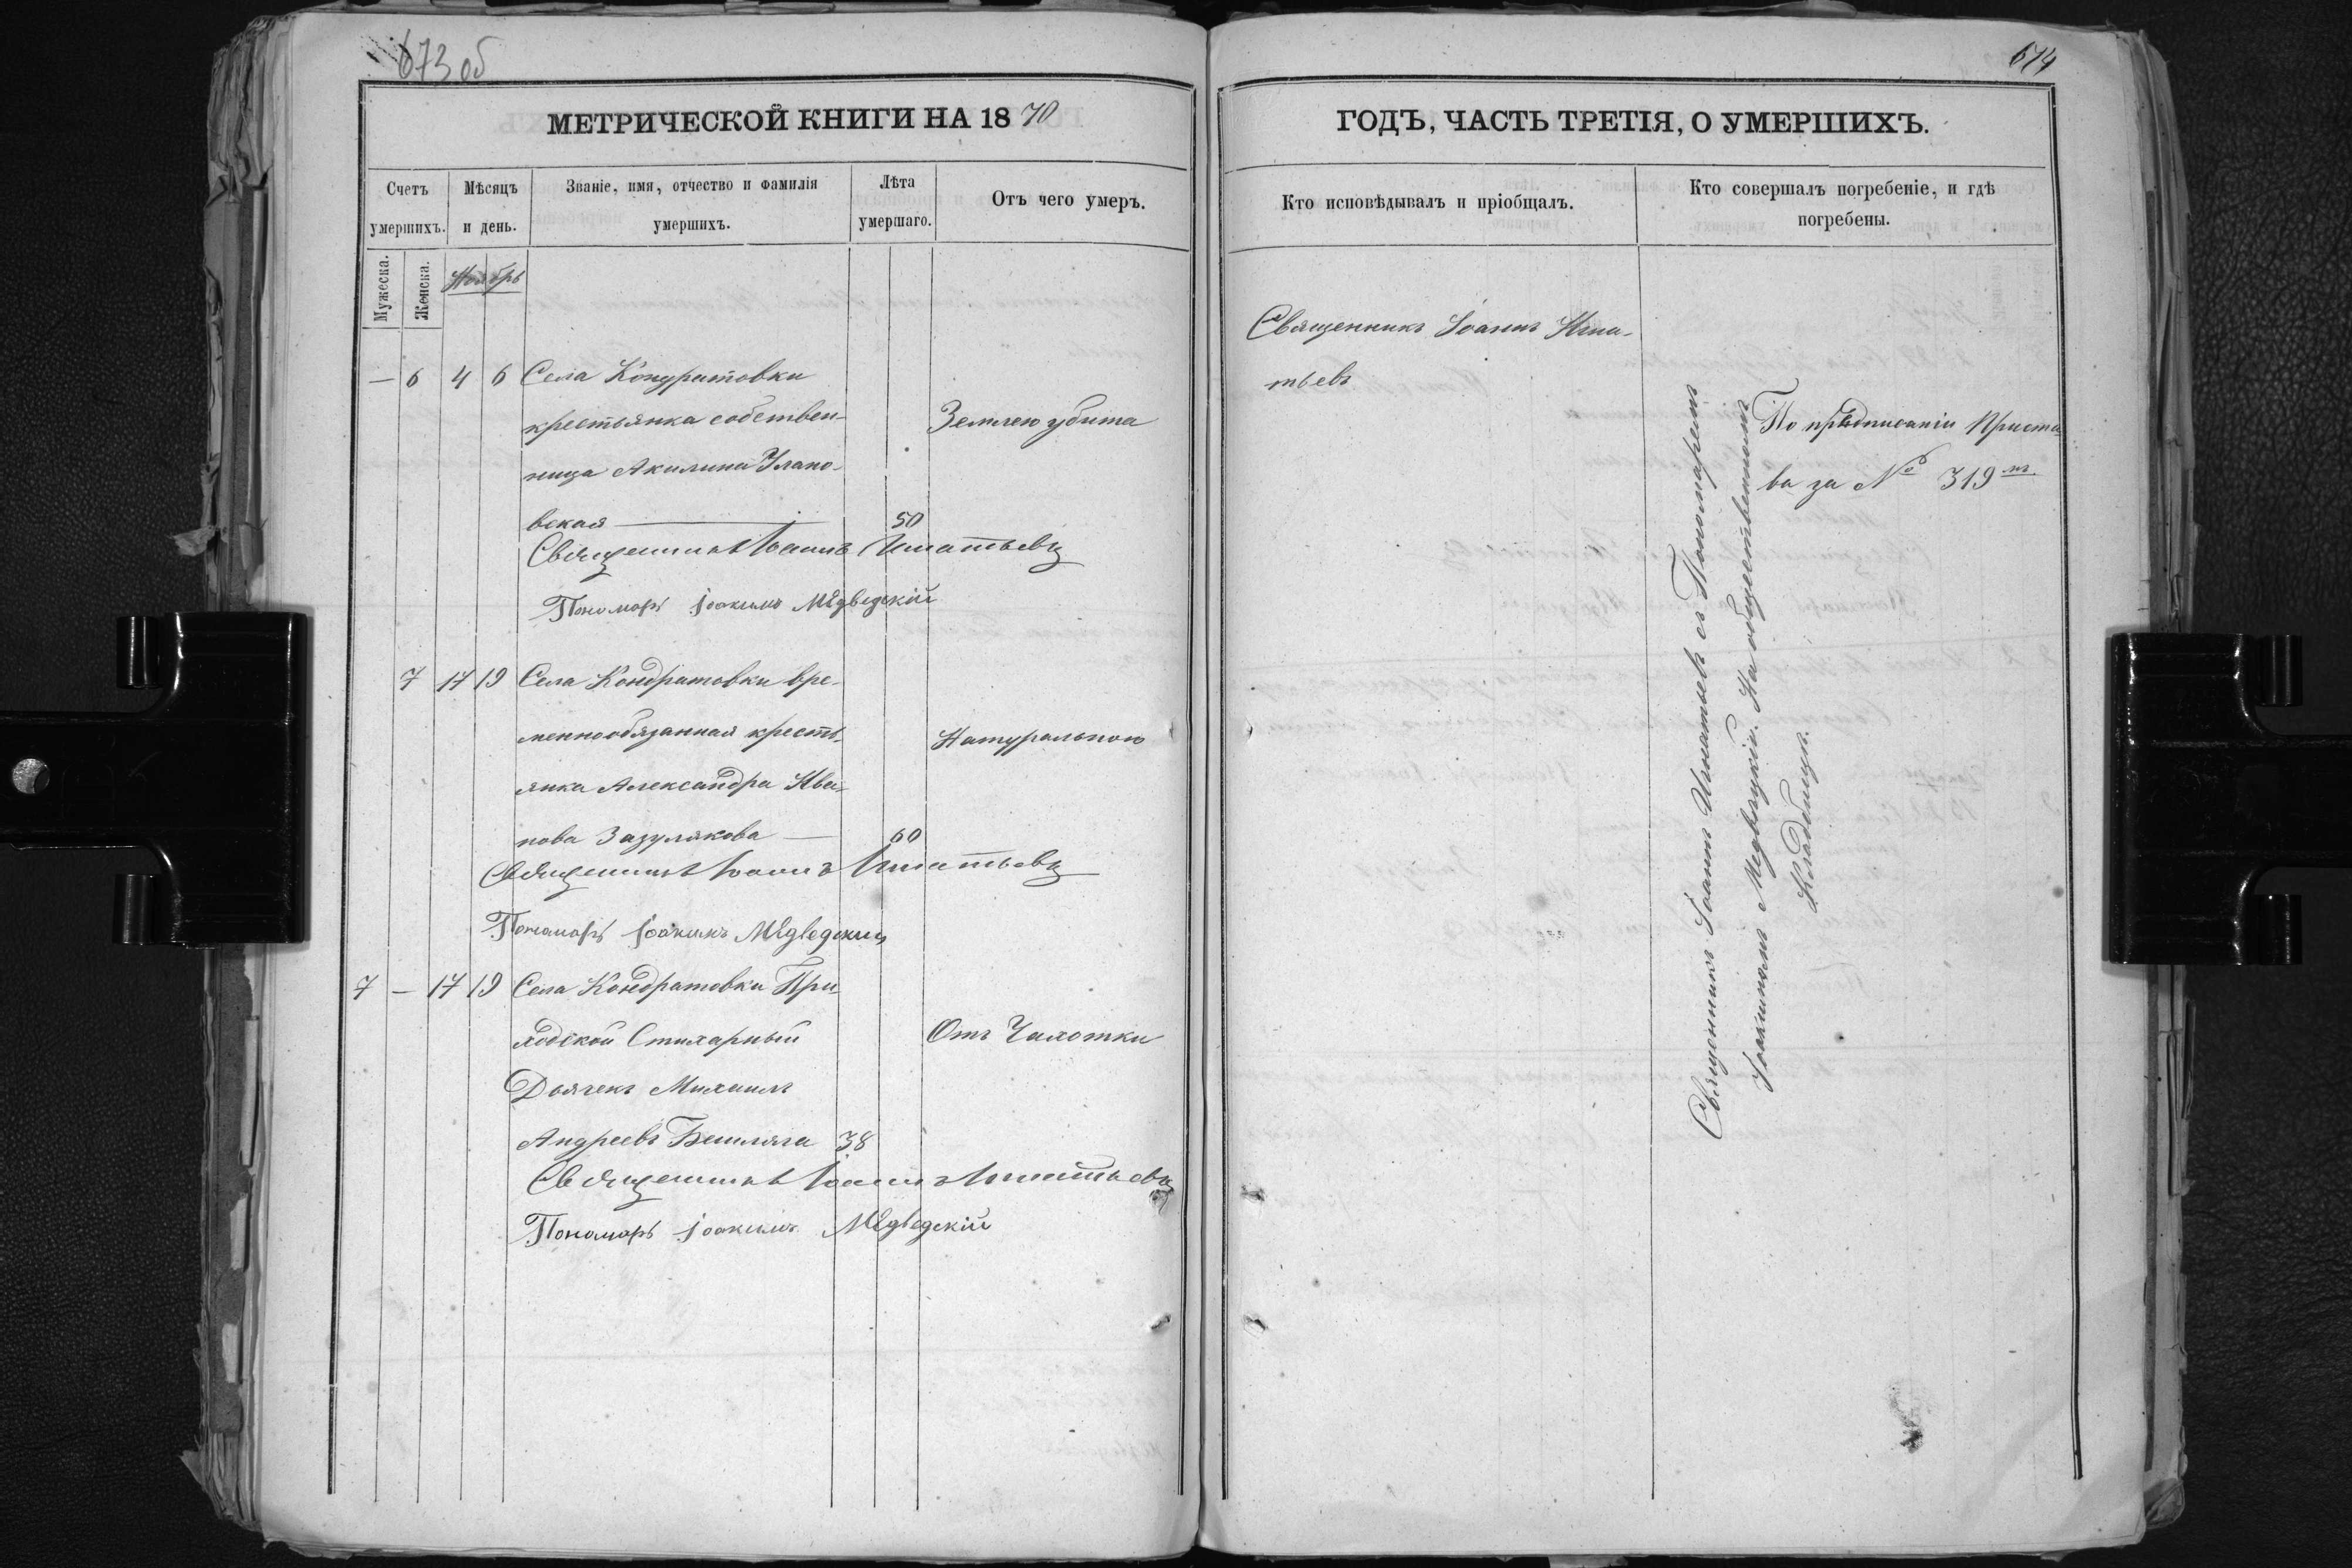 673 об
МЕТРИЧЕСКОЙ КНИГИ НА 1870
Счетъ умершихъ.
Мѣсяцъ и день.
Званіе, имя, отчество и фамилія умершихъ.
Лѣта умершаго.
Отъ чего умеръ.
Мужеска.
Женска.
Ноябрь
— 6 4 6 Села Кондратовки
крестьянка собствен-
ница Акилина Улано- Землею убита
вская — 50
Священникъ Іоаннъ Игнатьевъ
Пономарь Іоакимъ Медведскій
7 17 19 Села Кондратовки вре-
меннообязанная кресть- Натуральною
янка Александра Ива-
нова Зазулякова — 60
Священникъ Іоаннъ Игнатьевъ
Пономарь Іоакимъ Медведскій
7 — 17 19 Села Кондратовки При-
ходской Стихарный Отъ Чахотки
Дьячекъ Михаилъ
Андреевъ 38
Священникъ Іоаннъ Игнатьевъ
Пономарь Іоакимъ Медведскій
674
ГОДЪ, ЧАСТЬ ТРЕТІЯ, О УМЕРШИХЪ.
Кто исповѣдывалъ и пріобщалъ.
Кто совершалъ погребеніе, и гдѣ погребены.
Священникъ Іоаннъ Игна-
тьевъ
По предписанію Приста-
ва за № 319мъ
Священникъ Іоаннъ Игнатьевъ съ Пономаремъ
Іоакимомъ Медведскимъ. На общественномъ
Кладбищѣ.